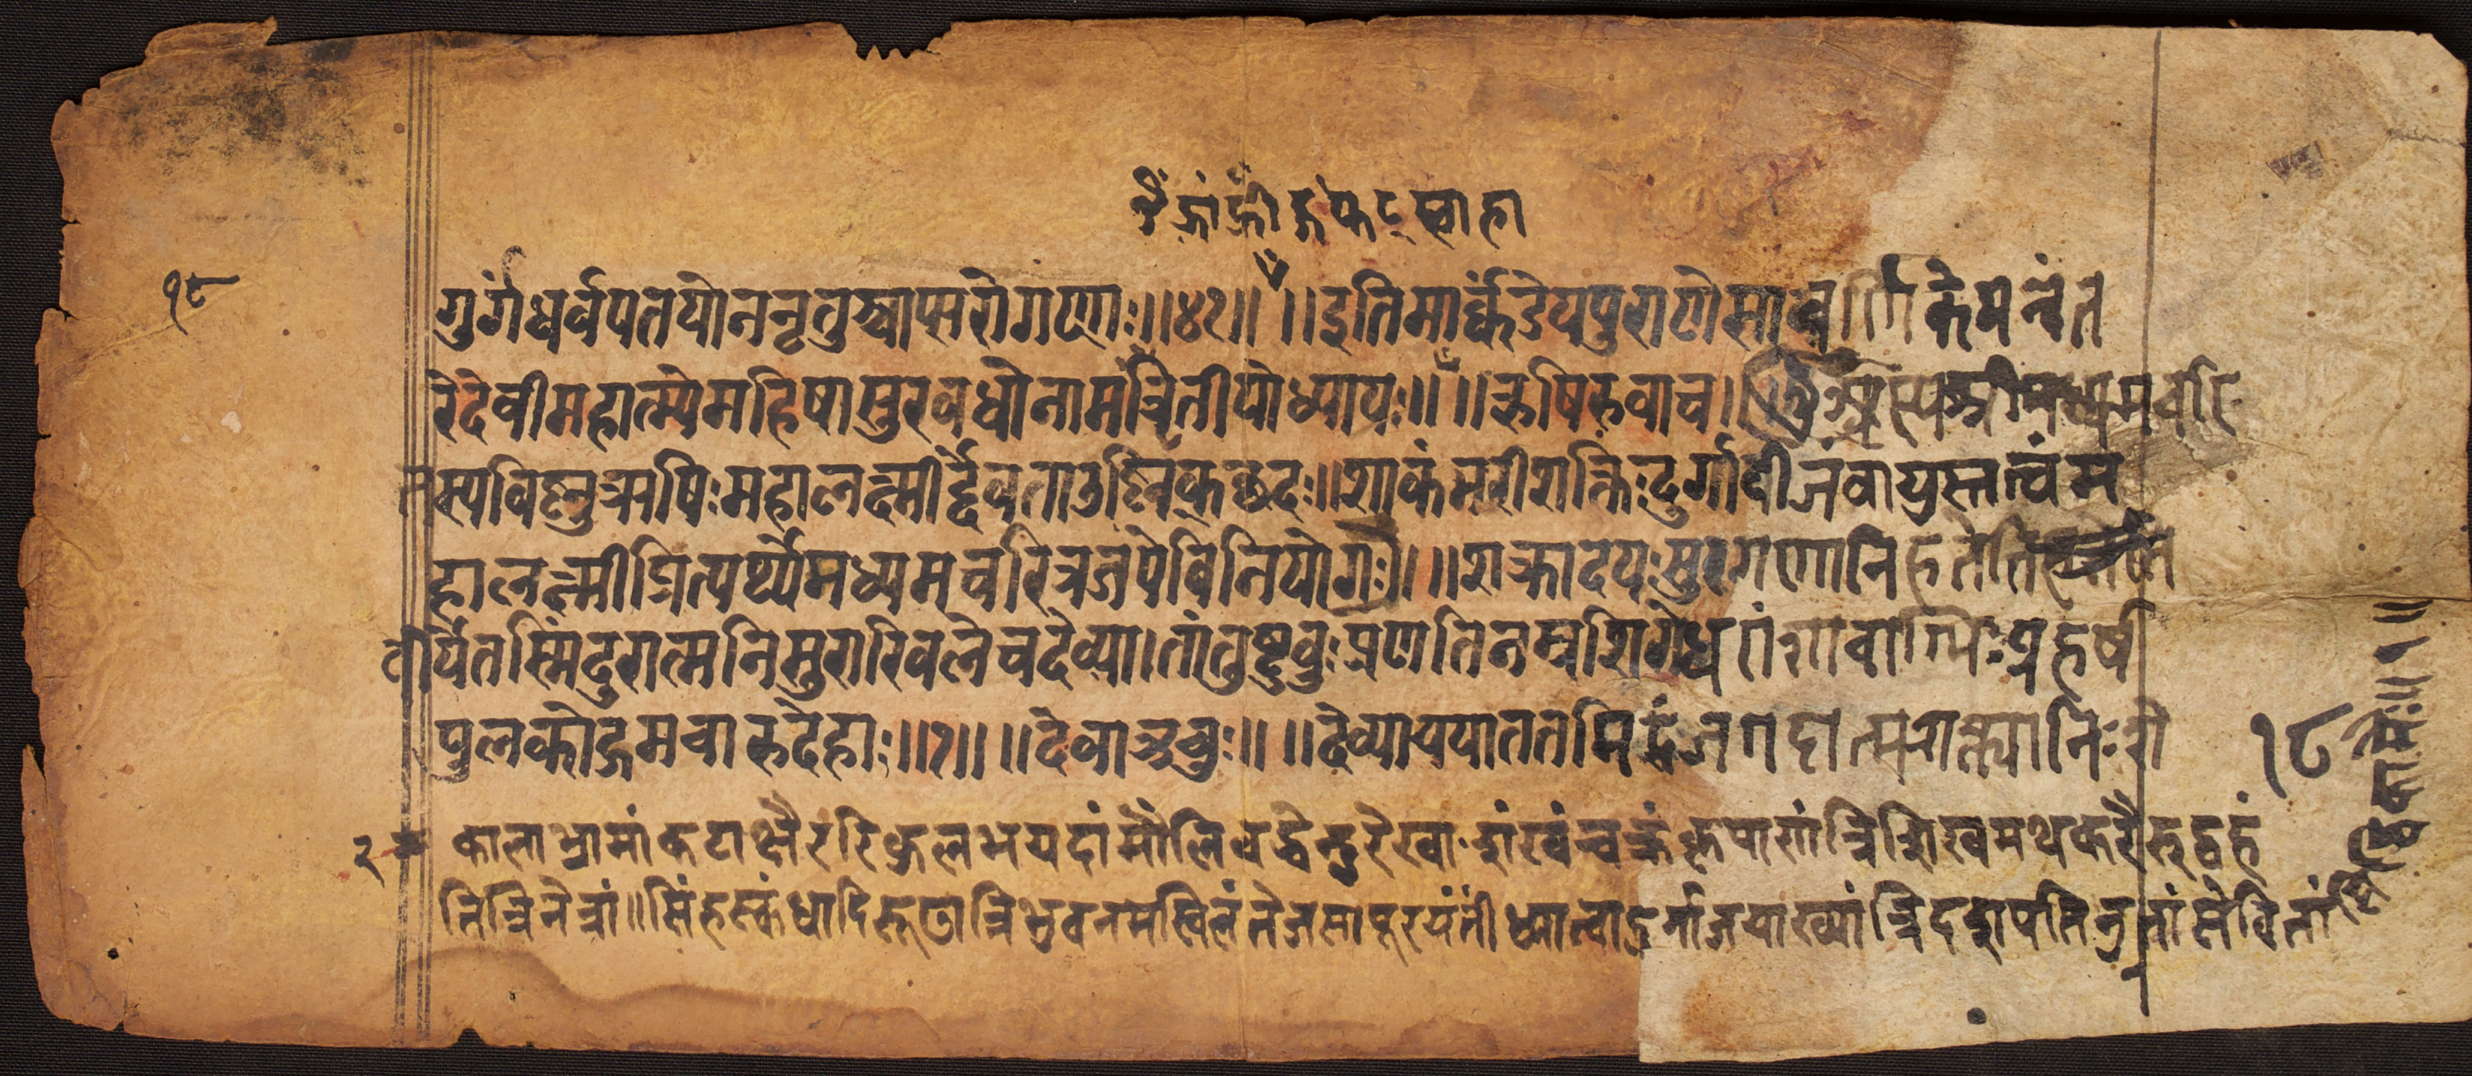 ऐं ह्रां ह्रीं हूं फट् स्वाहा
१८
गुर्गंधर्वपतयोननृतुश्चाप्सरोगणाः॥४१॥ ॥इतिमार्क्कंडेयपुराणेसावर्णिकेमन्वंत
रेदेवीमहात्म्येमहिषासुरवधोनामत्रितीयोध्यायः॥ ॥ऋषिरुवाच।
स्यविष्णुऋषिःमहालक्ष्मीर्द्देवताउष्णिक्छंदः॥शाकंभरीशक्तिःदुर्गाबीजंवायुस्तत्वंम
हालक्ष्मीप्रित्यर्थ्येमध्यमचरित्रजपेविनियोगः॥ ॥शक्रादयःसुरगणानिहतेति
वीर्येतस्मिंदुरात्मनिसुरारिबलेचदेव्या।तांतुष्टुवुःप्रणतिनम्रशिरोधरांशावाग्भिःप्रहर्ष
पुलकोद्गमचारुदेहाः॥१॥ ॥देवाऊचुः॥ ॥देव्यायया ततमिदंजगदात्मशक्त्यानिःशे
१८
२ कालाभ्राभांकटाक्षैररिकुलभयदांमौलिबद्धेन्दुरेखां शंखंचक्रंकृपाणंत्रिशिखमथकरैरुद्वहं
तित्रिनेत्रां॥सिंहस्कंधाधिरूढांत्रिभुवनमखिलंतेजसापूरयंतींध्यात्वादुर्गांजयाख्यांत्रिदशपतिनुतांसेवितां